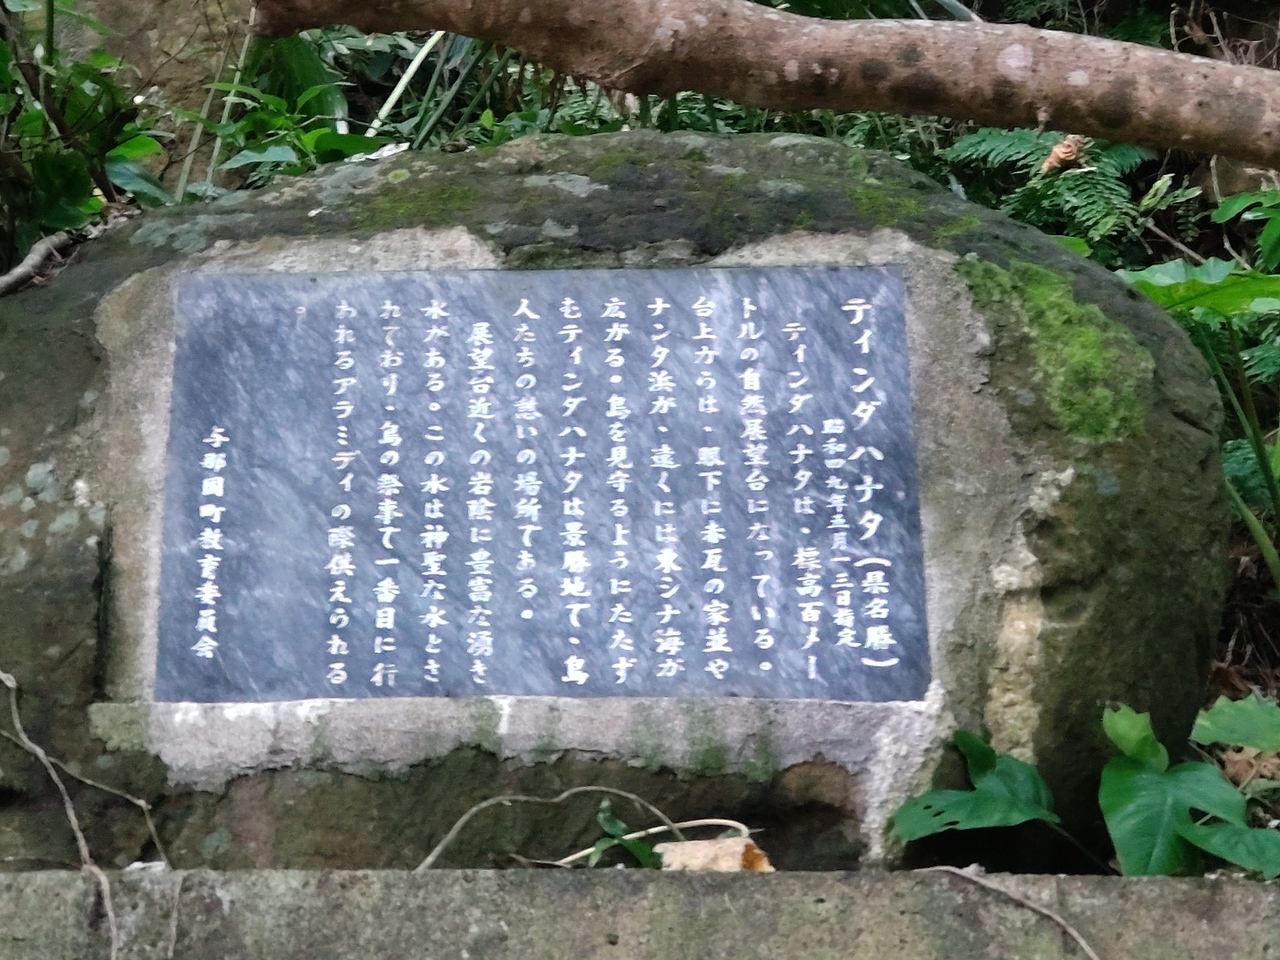 ティンダハナタ(県名勝)
昭和四九年五月一三日指定
ティンダハナタは、標高百メー
トルの自然展望台になっている。
台上からは、眼下に赤瓦の家並や
ナンタ浜が、遠くには東シナ海が
広がる。島を見守るようにたたず
むティンダハナタは景勝地で、島
人たちの憩いの場所である。
展望台近くの岩陰に豊富な湧き
水がある。この水は神聖な水とさ
れており、島の祭事で一番目に行
われるアラミディの際供えられる
。
与那国町教育委員会